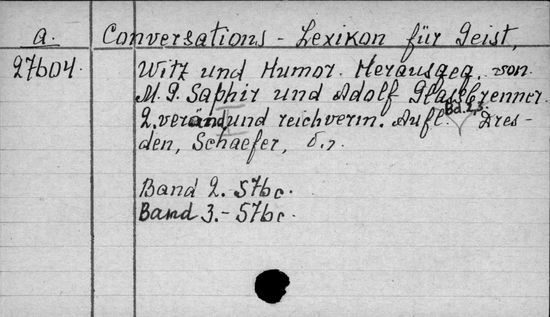 a. Conversations-Lexikon für Geist,
27604. Witz und Humor. Herausgeg. von
M. G. Saphir und Adolf Glassbrenner.
2. veränd. und reichverm. Aufl. Bd. 2,3. Dres-
den, Schaefer, o. J.
Band 2. - 576c.
Band 3. - 576c.